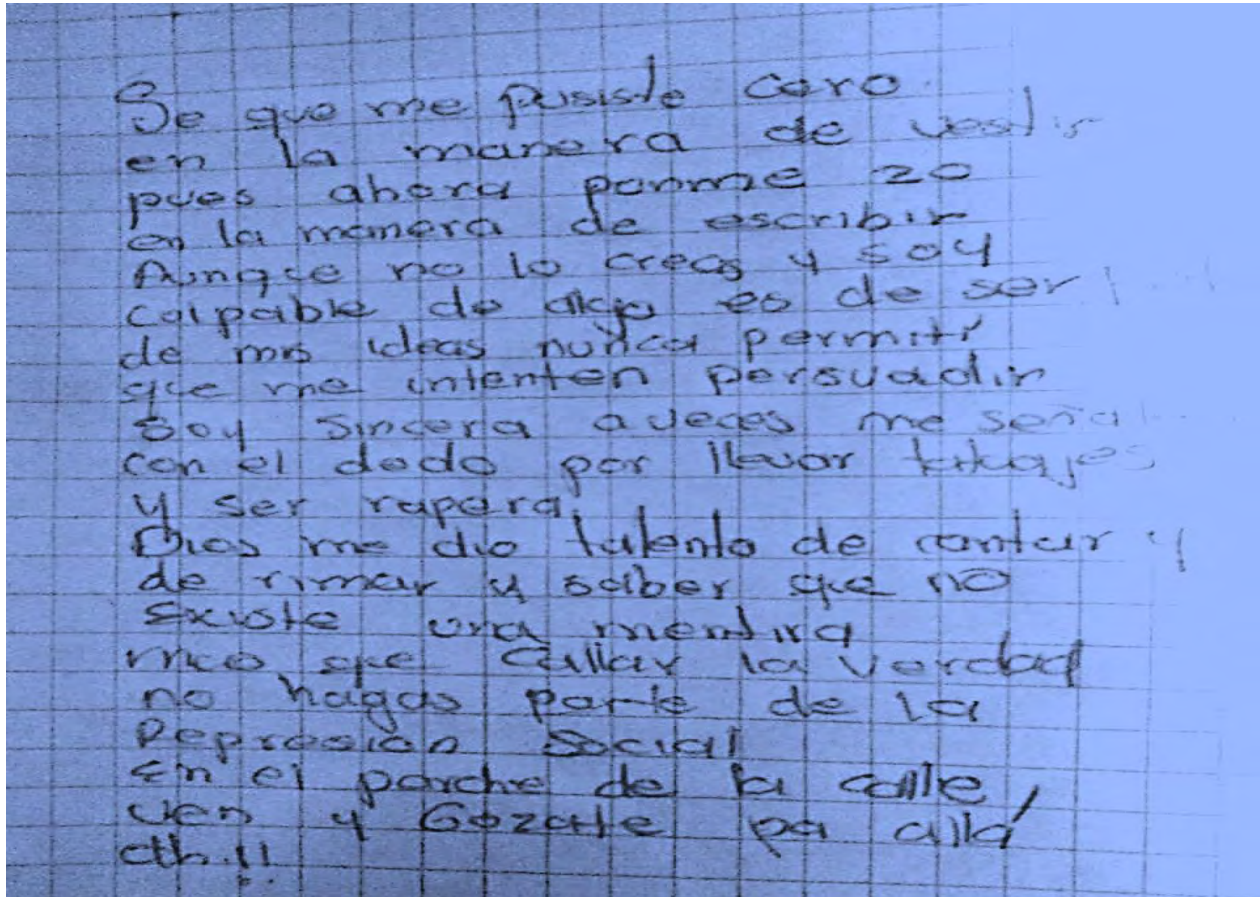 Se que me pusiste cero
en la manera de vestir
pues ahora ponme 20
en la manera de escribir
Aunque no lo creas y soy
culpable de algo es de ser
de mis ideas nunca permití
que me intenten persuadir
Soy sincera aveces me
con el dedo por llevar tatuajes
y ser rapera,
Dios me dio talento de cantar y
de rimar y saber que no
Existe una mentira
mas que callar la verdad
no hagas parte de la
Represion Social
En el parche de la calle,
ven y Gozate pa allá